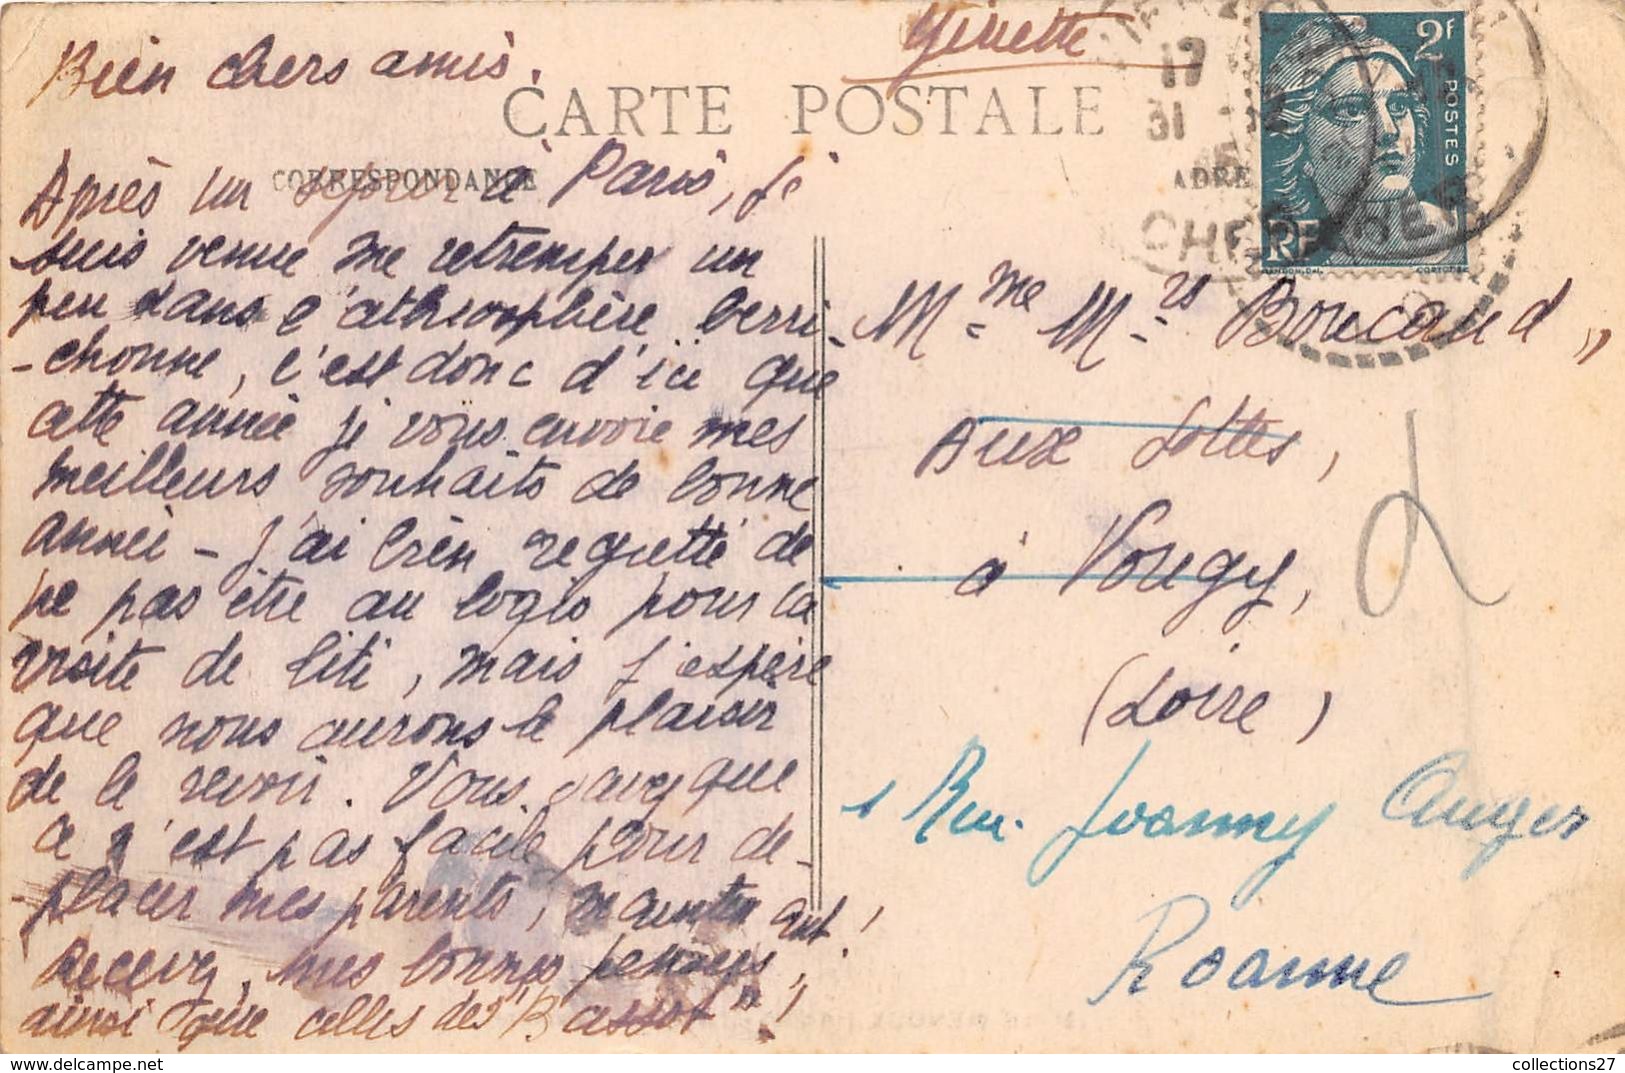 Bien chers amis.
Ginette
CARTE POSTALE
CORRESPONDANCE
Après un séjour à Paris, je
suis venue me retremper un
peu dans l'athmosphère berri-
-chonne, c'est donc d'ici que
cette année je vous envoie mes
meilleurs souhaits de bonne
année - J'ai bien regretté de
ne pas être au logis pour la
visite de titi, mais j'espère
que nous aurons le plaisir
de le revoir. Vous savez que
ce n'est pas facile pour dé-
-placer mes parents, maintenant!
Recevez, mes bonnes pensées,
ainsi que celles des "Bassot"!
2F
POSTES
RF
17
31
ADRE
CHER
Mme Mrs Boucaud,,
Aux Lottes,
à Vougy,
(Loire)
1 Rue. Joanny Auger
Roanne
collections27